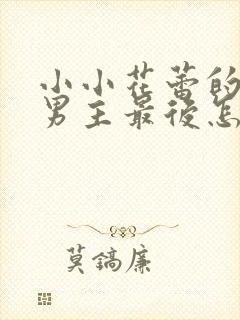 小小花蕾的
男主最后怎
莫镐廉